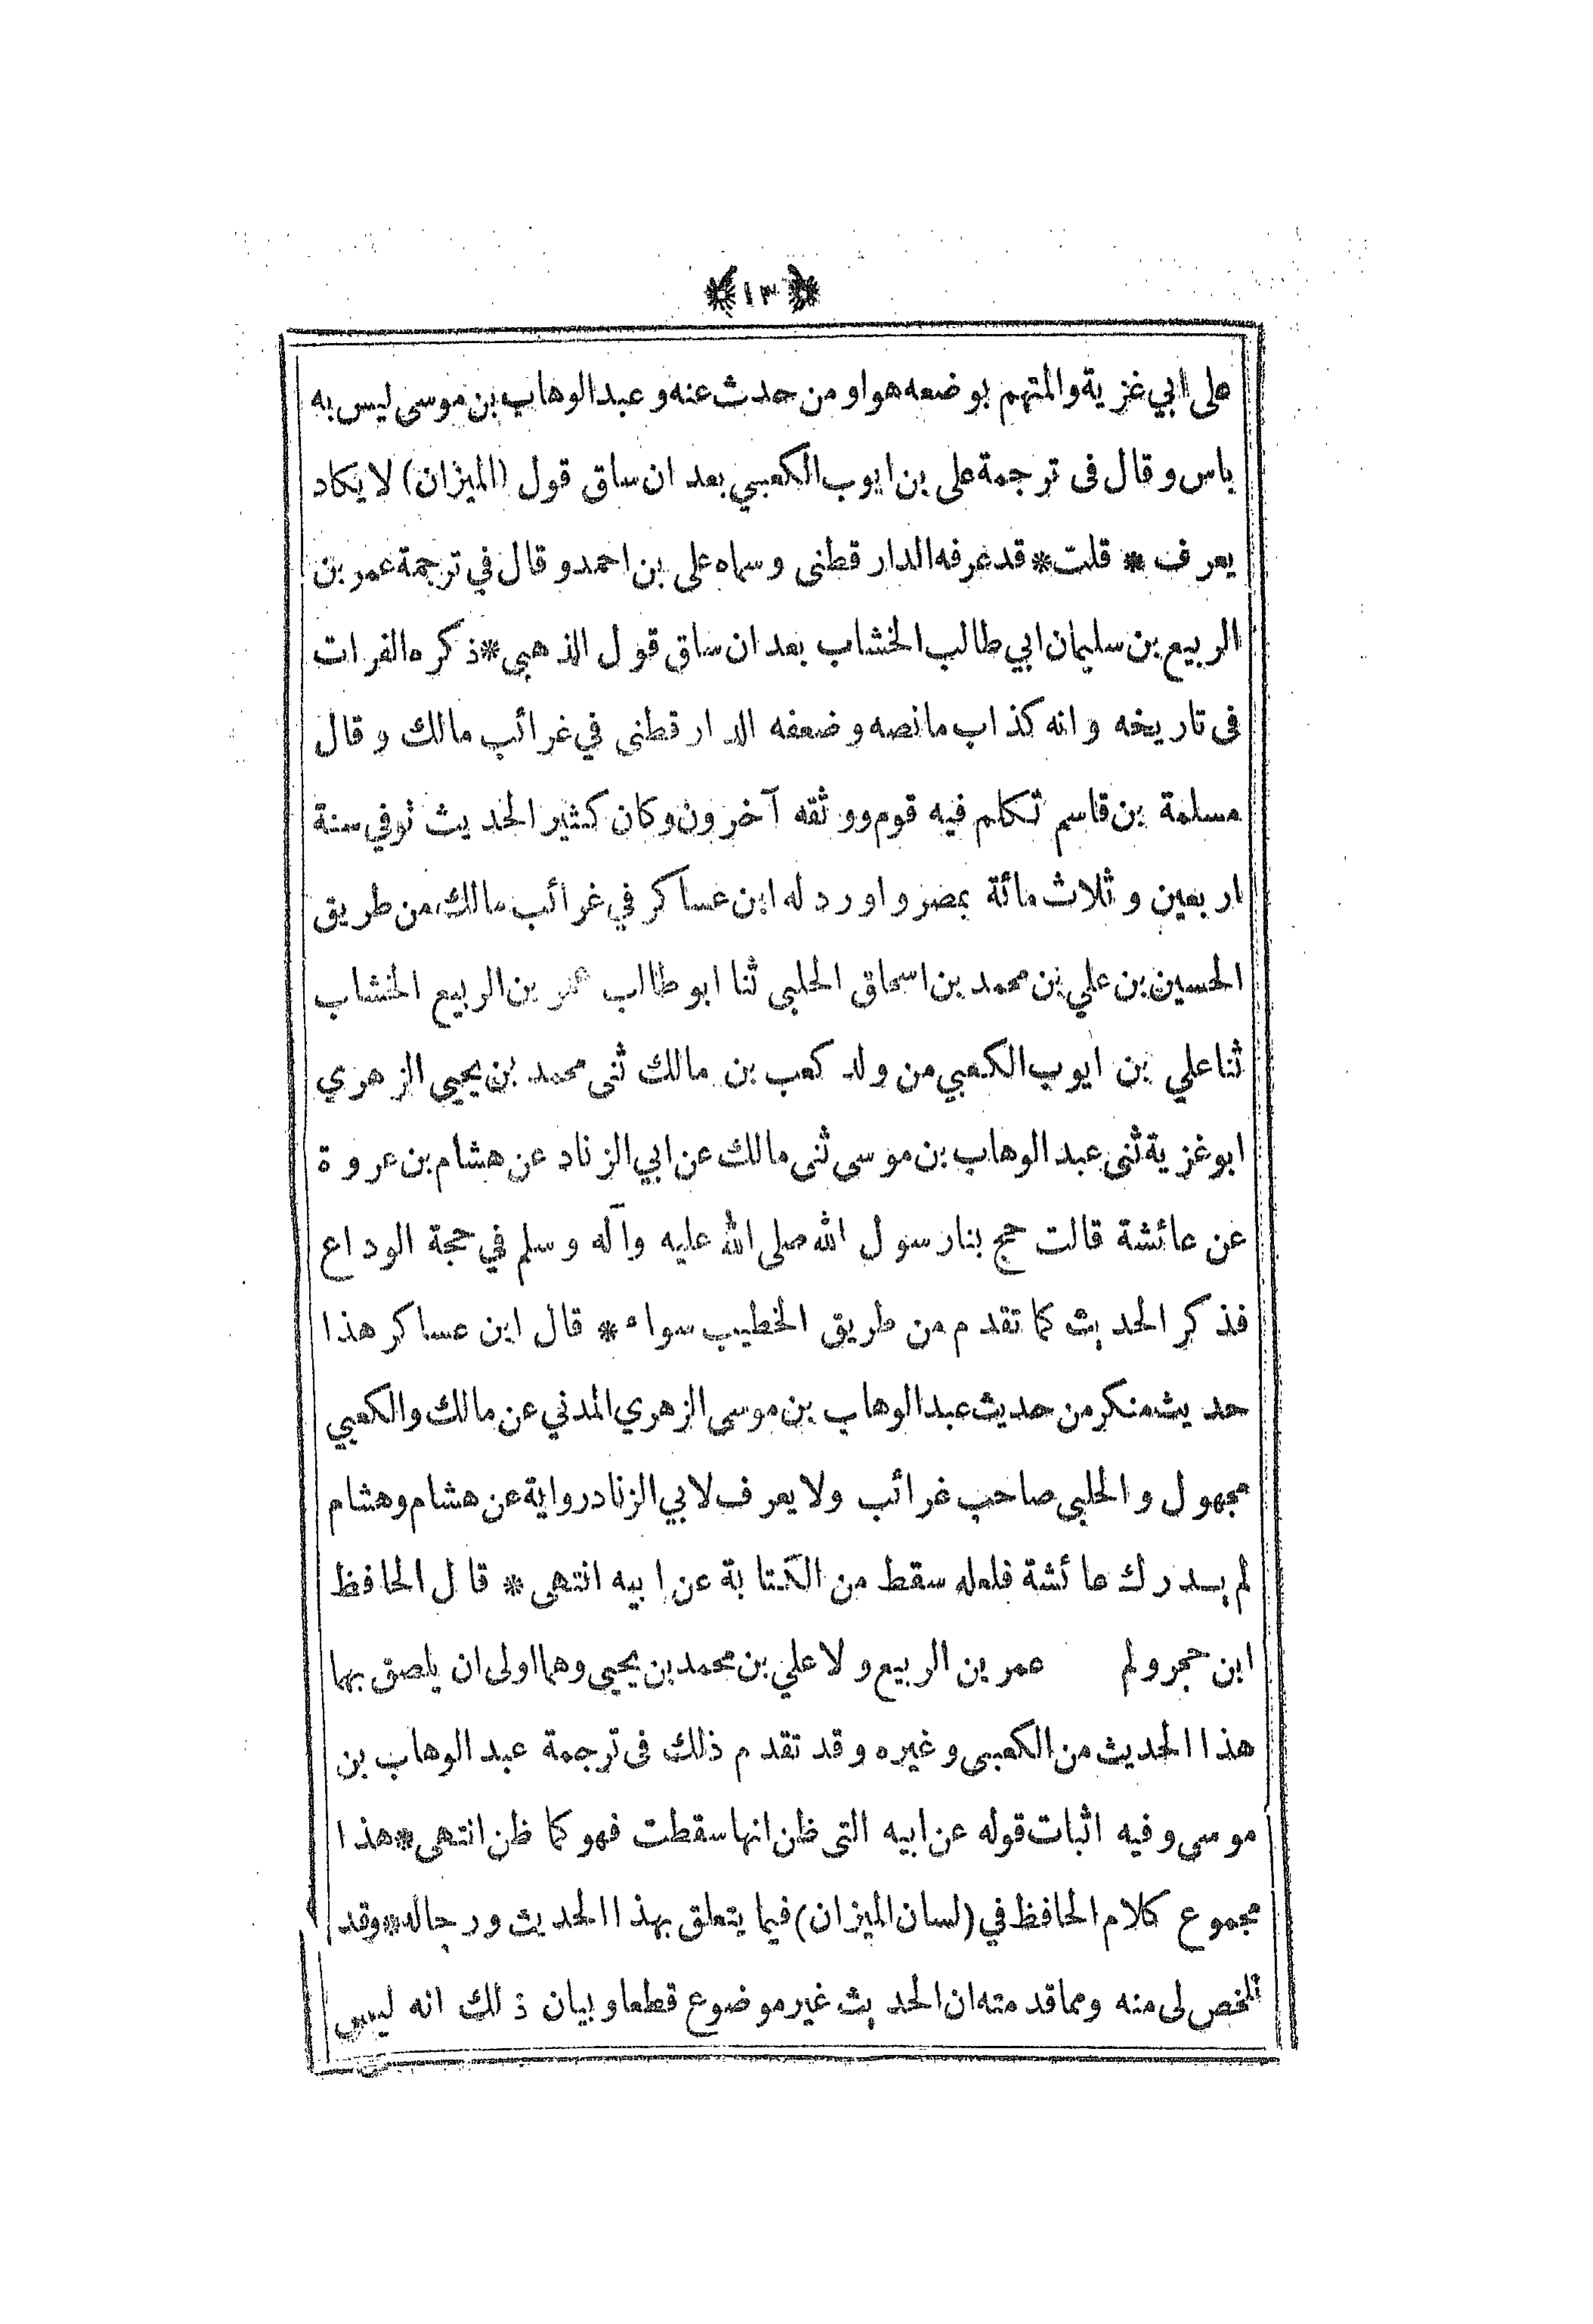 ﴿١٣﴾
على ابي غزية والمتهم بوضعه هو او من حدث عنه و عبد الوهاب بن موسى ليس به
باس و قال فى ترجمة على بن ايوب الكعبي بعد ان ساق قول (الميزان) لا يكاد
يعرف * قلت * قد عرفه الدار قطنى و سماه على بن احمد و قال في ترجمة عمر بن
الربيع بن سليمان ابي طالب الخشاب بعد ان ساق قول الذهبى * ذكره الفرات
فى تاريخه و انه كذاب ما نصه و ضعفه الدار قطنى في غرائب مالك و قال
مسلمة بن قاسم تكلم فيه قوم ووثقه آخرون و كان كثير الحديث توفي سنة
اربعين و ثلاث مائة بمصر و اورد له ابن عساكر في غرائب مالك من طريق
الحسين بن علي بن محمد بن اسحاق الحلبى ثنا ابو طالب عمر بن الربيع الخشاب
ثنا علي بن ايوب الكعبي من ولد كعب بن مالك ثنى محمد بن يحيى الزهري
ابو غزية ثنى عبد الوهاب بن موسى ثنى مالك عن ابي الزناد عن هشام بن عروة
عن عائشة قالت حج بنا رسول الله صلى الله عليه وآله وسلم في حجة الوداع
فذكر الحديث كما تقدم من طريق الخطيب سواء * قال ابن عساكر هذا
حديث منكر من حديث عبد الوهاب بن موسى الزهري المدني عن مالك والكعبي
مجهول و الحلبى صاحب غرائب ولا يعرف لابي الزناد رواية عن هشام وهشام
لم يدرك عائشة فلعله سقط من الكتابة عن ابيه انتهى * قال الحافظ
ابن حجر و لم عمر بن الربيع و لا علي بن محمد بن يحيى و هما اولى ان يلصق بهما
هذا الحديث من الكعبى و غيره و قد تقدم ذلك فى ترجمة عبد الوهاب بن
موسى و فيه اثبات قوله عن ابيه التى ظن انها سقطت فهو كما ظن انتهى * هذا
مجموع كلام الحافظ في (لسان الميزان) فيما يتعلق بهذا الحديث و رجاله * وقد
تلخص لى منه ومما قدمته ان الحديث غير موضوع قطعا و بيان ذلك انه ليس